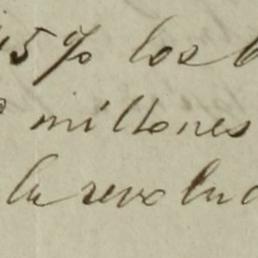 15% los
millones
la revolu